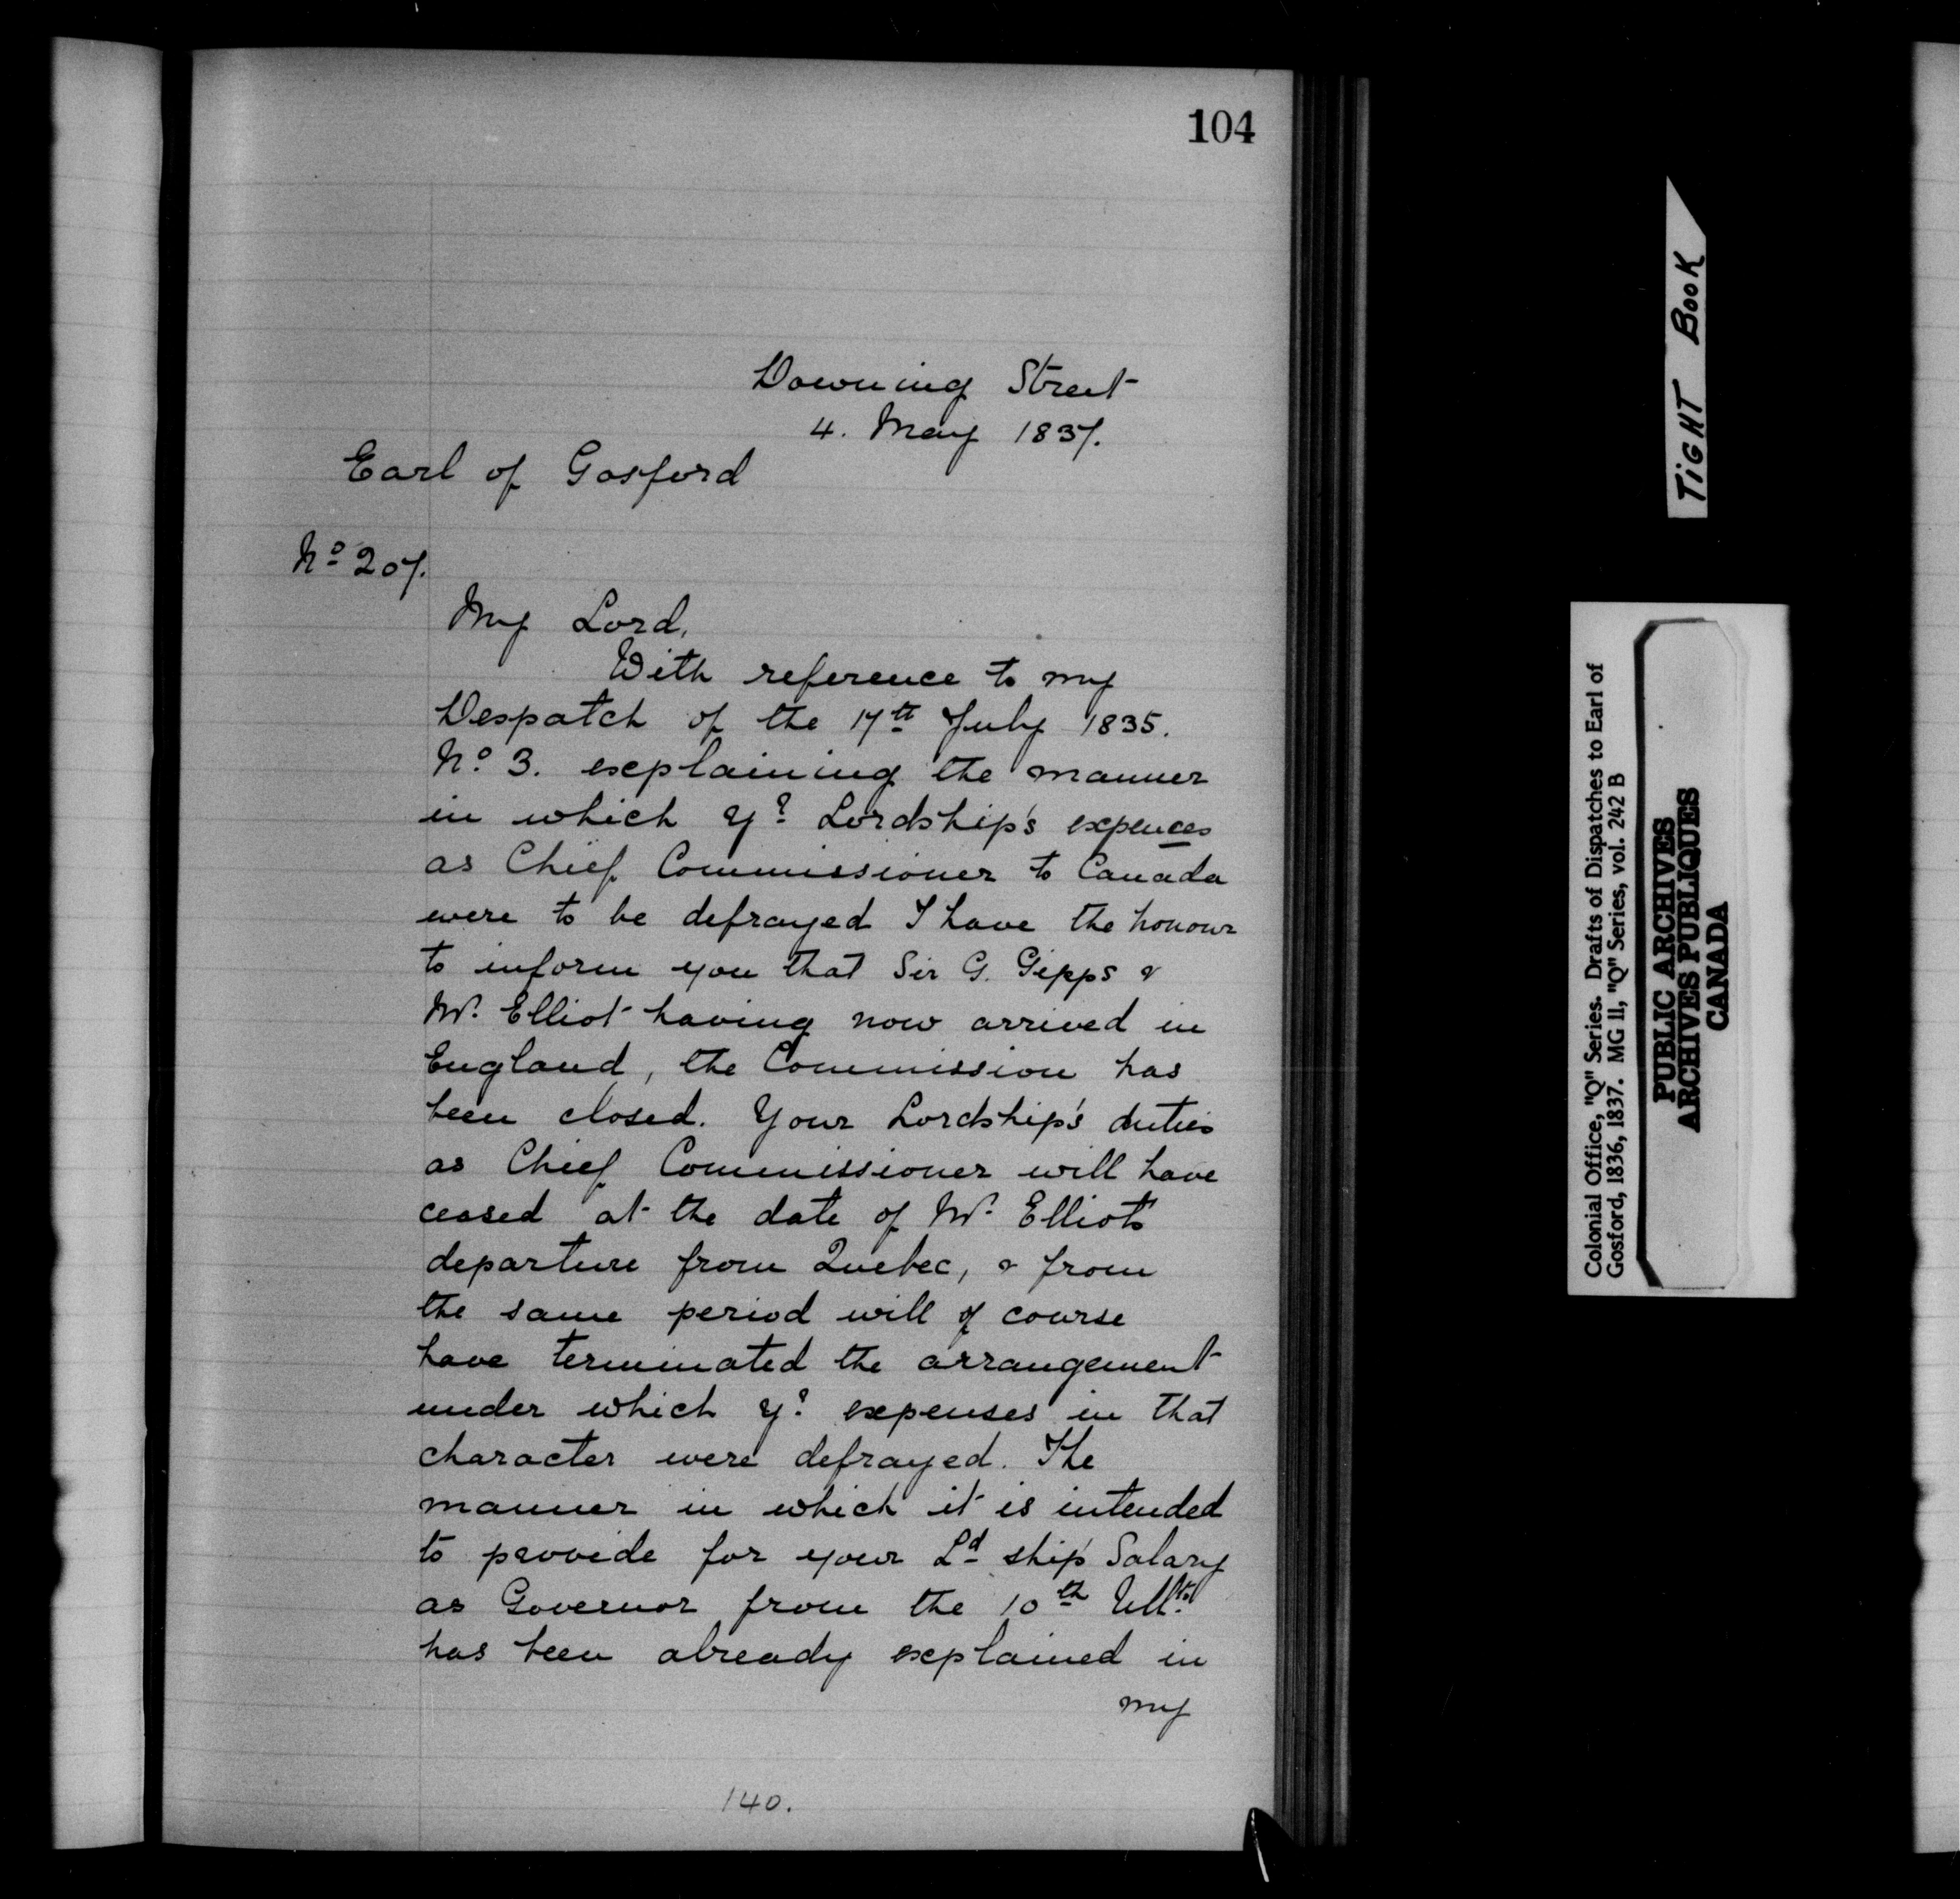 104
Downing Street
4. May 1837.
Earl of Gosford
No 207.
My Lord,
With reference to my
Despatch of the 17th July 1835.
No. 3. explaining the manner
in which yr. Lordship's expences
as Chief Commissioner to Canada
were to be defrayed I have the honour
to inform you that Sir G. Gipps &
Mr. Elliot having now arrived in
England, the Commission has
been closed. Your Lordship's duties
as Chief Commissioner will have
ceased at the date of Mr. Elliot's
departure from Quebec, & from
the same period will of course
have terminated the arrangement
under which yr. expenses in that
character were defrayed. The
manner in which it is intended
to provide for your Ld ship's Salary
as Governor from the 10th Ulto.
has been already explained in
my
140.
TIGHT BOOK
Colonial Office, "Q" Series. Drafts of Dispatches to Earl of
Gosford, 1836, 1837. MG 11, "Q" Series, vol. 242 B
PUBLIC ARCHIVES
ARCHIVES PUBLIQUES
CANADA